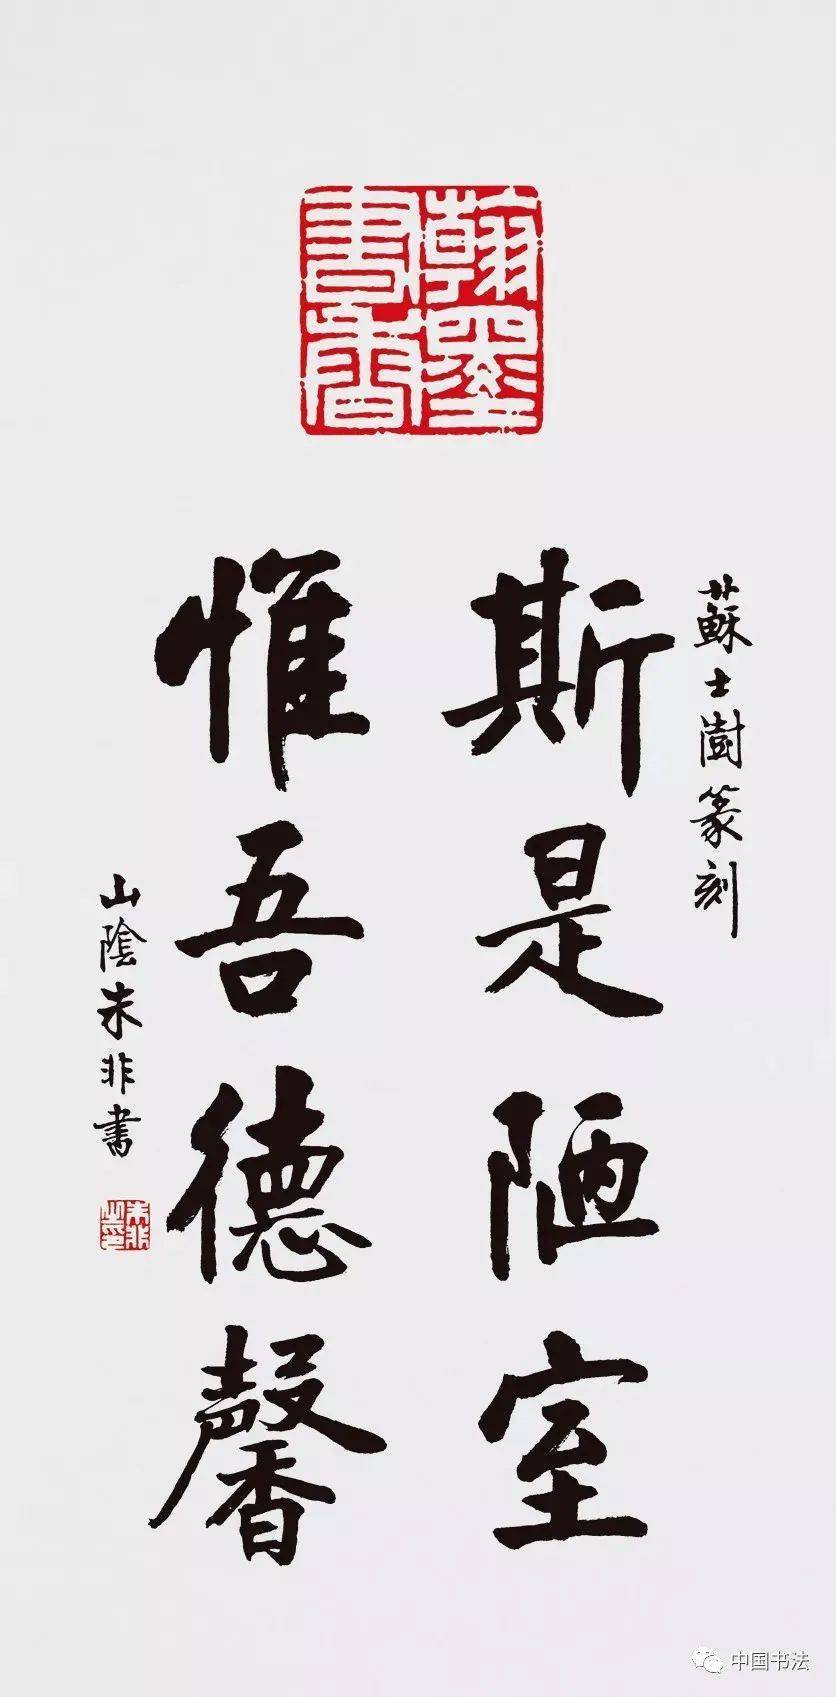 翰墨
書香
蘇士澍篆刻
斯是陋室
惟吾德馨
山陰朱非書
朱非
之印
中国书法